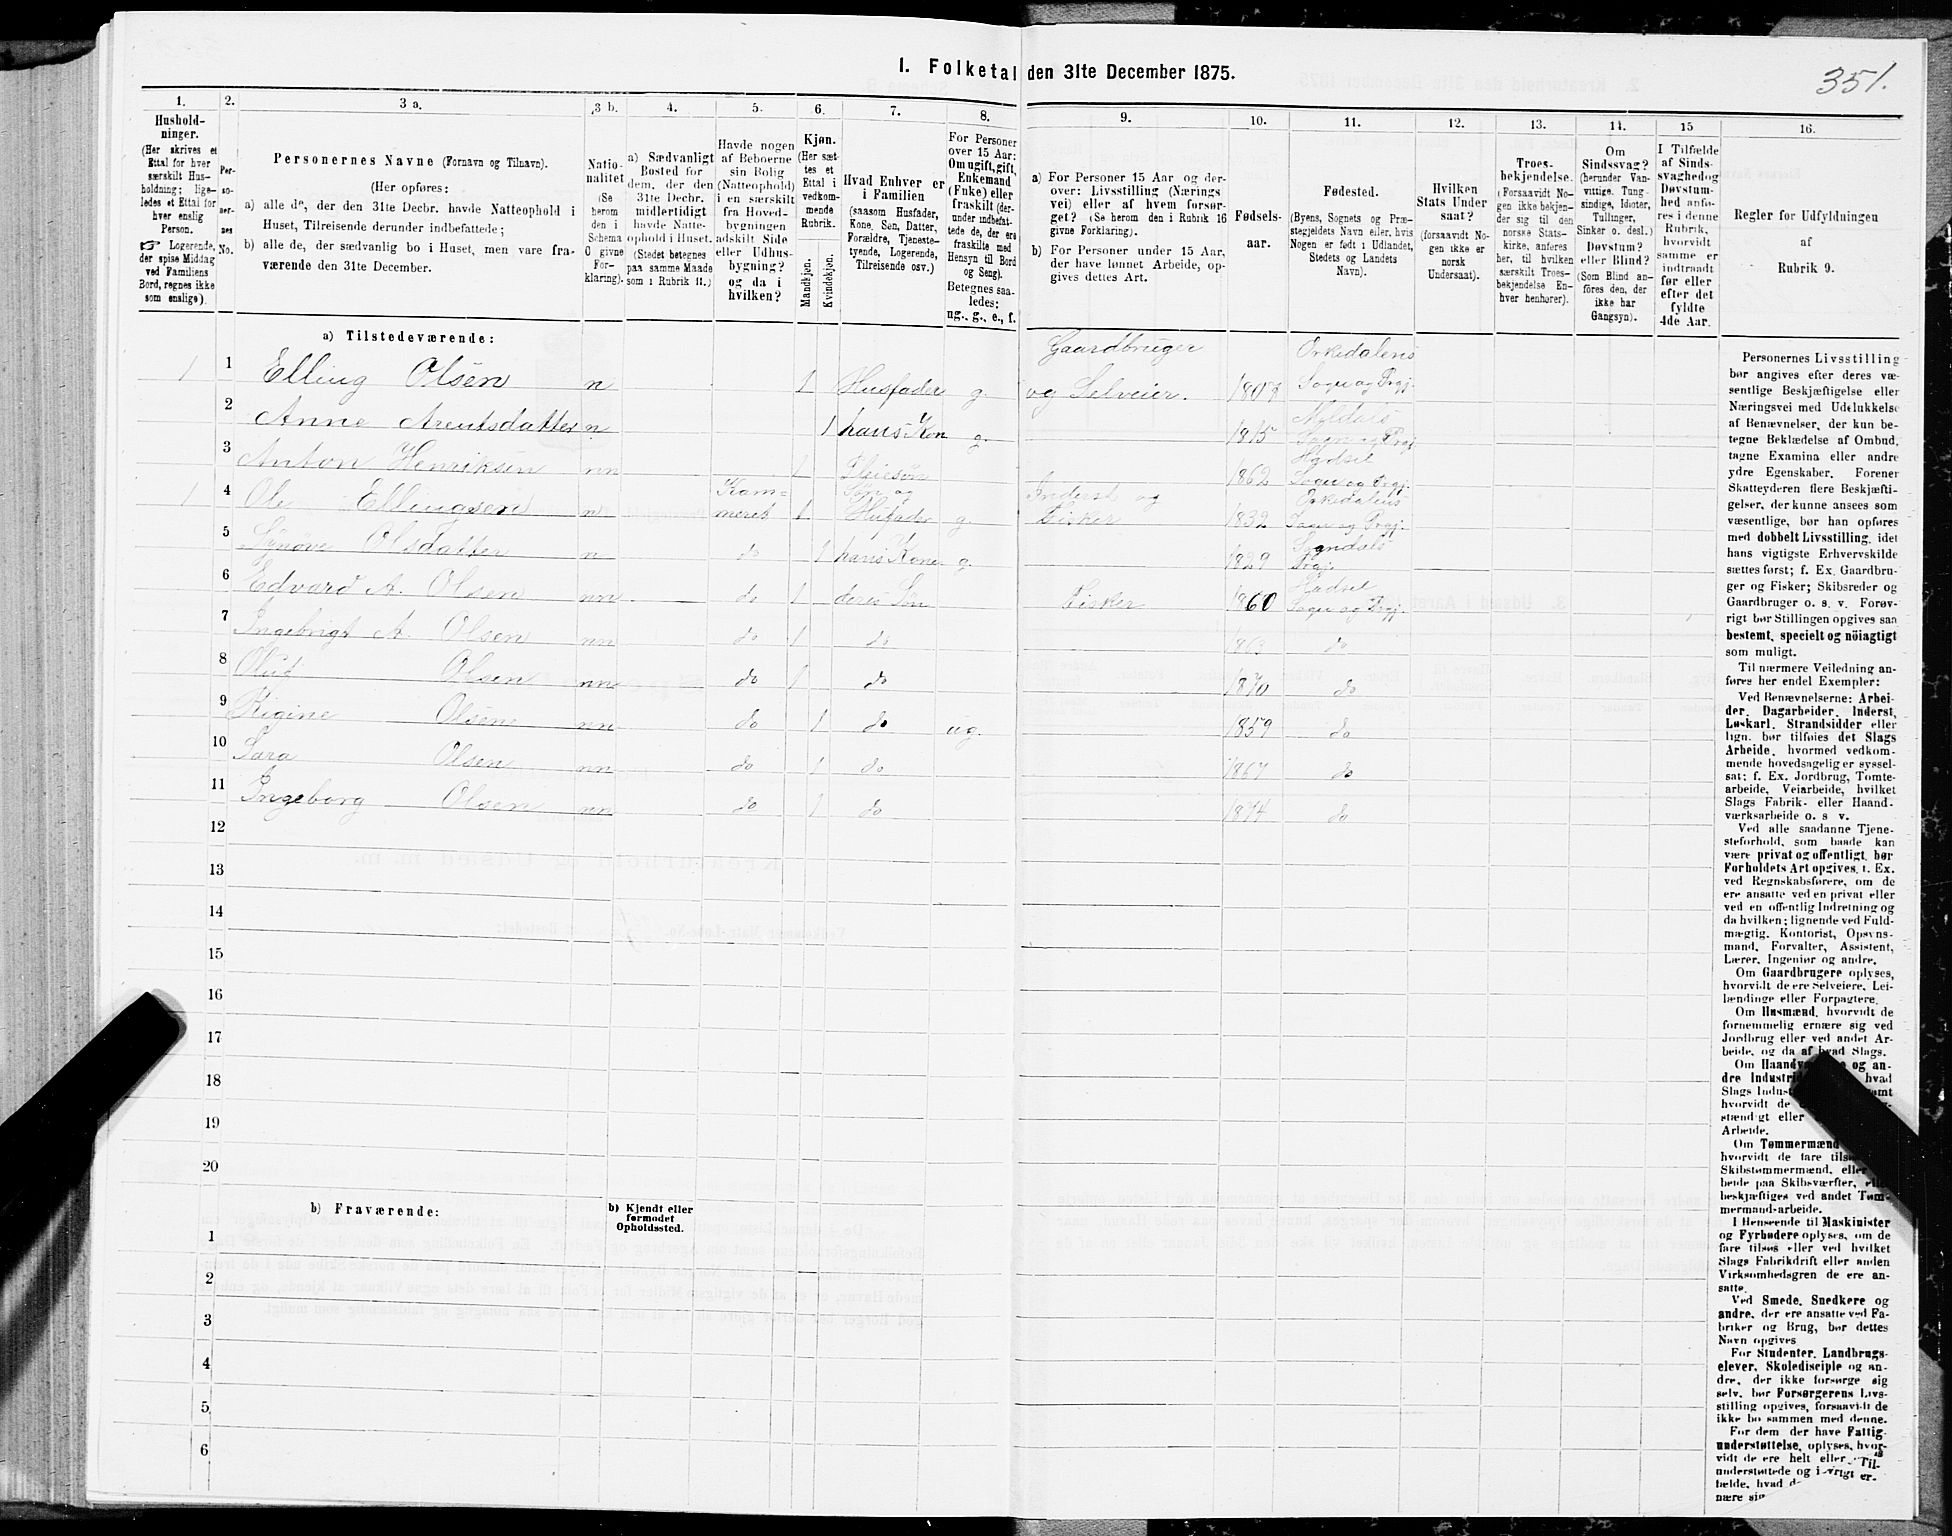 I. Folketal den 31te December 1875.
351.
1. 2. 3 a. 3 b. 4. 5. 6. 7. 8. 9. 10. 11. 12. 13. 14. 15 16.
Hushold-
ninger.
(Her skrives et
Ettal for hver
særskilt Hus-
holdning; lige-
ledes et Ettal for
hver enslig
Person.
Logerende,
der spise Middag
ved Familiens
Bord, regnes ikke
som enslige).
Per-
so-
ner-
nes
No.
Personernes Navne (Fornavn og Tilnavn).
(Her opføres:
a) alle de, der den 31te Decbr. havde Natteophold i
Huset, Tilreisende derunder indbefattede;
b) alle de, der sædvanlig bo i Huset, men vare fra-
værende den 31te December.
Natio-
nalitet
(Se
herom
den i
Schema
O givne
For-
klaring).
a) Sædvanligt
Bosted for
dem, der den
31te Decbr.
midlertidigt
havde Natte-
ophold i Huset.
(Stedet betegnes
paa samme Maade
som i Rubrik 11.)
Havde nogen
af Beboerne
sin Bolig
(Natteophold)
i en særskilt
fra Hoved-
bygningen
adskilt Side
eller Udhus-
bygning?
og da i
hvilken?
Kjøn.
(Her sæt-
tes et
Ettal i
vedkom-
mende
Rubrik.
Mandkjøn.
Kvindekjøn.
Hvad Enhver er
i Familien
(saasom Husfader,
Kone, Søn, Datter,
Forældre, Tjeneste-
tyende, Logerende,
Tilreisende osv.)
For Personer
over 15 Aar:
Om ugift, gift,
Enkemand
(Enke) eller
fraskilt (der-
under indbefat-
tede de, der ere
fraskilte med
Hensyn til Bord
og Seng).
Betegnes saa-
ledes:
ug., g., e., f.
a) For Personer 15 Aar og der-
over: Livsstilling (Nærings
vei) eller af hvem forsør-
get? (Se herom den i Rubrik 16
givne Forklaring).
b) For Personer under 15 Aar,
der have lønnet Arbeide, op-
gives dettes Art.
Fødsels-
aar.
Fødested.
(Byens, Sognets og Præ-
stegjeldets Navn eller, hvis
Nogen er født i Udlandet,
Stedets og Landets
Navn).
Hvilken
Stats Under
saat?
(forsaavidt No-
gen ikke er
norsk
Undersaat).
Troes-
bekjendelse.
(Forsaavidt No-
gen ikke bekjen-
der sig til den
norske Stats-
kirke, anføres
her, til hvilken
særskilt Troes-
bekjendelse En-
hver henhører).
Om
Sindssvag?
(herunder Van-
vittige, Tung-
sindige, Idioter,
Tullinger,
Sinker o. desl.)
Døvstum?
eller Blind?
(Som Blind an-
føres den, der
ikke har
Gangsyn).
I Tilfælde
af Sinds-
svaghed og
Døvstum-
hed anfø-
res i denne
Rubrik,
hvorvidt
samme er
indtraadt
før eller
efter det
fyldte
4de Aar.
Regler for Udfyldningen
af
Rubrik 9.
a) Tilstedeværende:
1 1 Elling Olsen n 1 Husfader g. Gaardbruger og Selveier. 1807 Orkedalens Sogn og Prgj.
2 Anne Arentsdatter n 1 hans Kon g. 1815 Sogn og Prgj
3 Anton Henriksen nn 1 Pleiesøn 1862 Hadsel Sogn og Prgj.
1 4 Ole Ellingsen n Kam-meret 1 Søn og Husfader g. Inderst og Fisker 1832 Orkedalens Sogn og Prgj.
5 Synøve Olsdatter n do 1 hans Kone g. 1829 Sogndals Prgj.
6 Edvard A. Olsen nn do 1 deres Søn Fisker 1860 Hadsel Sogn og Prgj.
7 Ingebrigt A. Olsen nn do 1 do 1863 do
8 Oluf Olsen nn do 1 do 1870 do
9 Rigine Olsen nn do 1 do ug. 1859 do
10 Sara Olsen nn do 1 do 1867 do
11 Ingeborg Olsen nn do 1 do 1874 do
12
13
14
15
16
17
18
19
20
b) Fraværende:
b) Kjendt eller
formodet
Opholdssted.
1
2
3
4
5
6
Personernes Livsstilling
bør angives efter deres væ-
sentlige Beskjæftigelse eller
Næringsvei med Udelukkelse
af Benævnelser, der kun be-
tegne Beklædelse af Ombud,
tagne Examina eller andre
ydre Egenskaber. Forener
Skatteyderen flere Beskjæfti-
gelser, der kunne ansees som
væsentlige, bør han opføres
med dobbelt Livsstilling, idet
hans vigtigste Erhvervskilde
sættes først; f. Ex. Gaardbru-
ger og Fisker; Skibsreder og
Gaardbruger o. s. v. Forøv-
rigt bør Stillingen opgives saa
bestemt, specielt og nöiagtigt
som muligt.
Til nærmere Veiledning an-
føres her endel Exempler:
Ved Benævnelserne: Arbei-
der, Dagarbeider, Inderst,
Løskarl, Strandsidder eller
lign. bør tilføies det Slags
Arbeide, hvormed vedkom-
mende hovedsagelig er syssel-
sat; f. Ex. Jordbrug, Tomte-
arbeide, Veiarbeide, hvilket
Slags Fabrik- eller Haand-
værksarbeide o. s v.
Ved alle saadanne Tjene-
steforhold, som baade kan
være privat og offentligt, bør
Forholdets Art opgives, t. Ex.
ved Regnskabsførere, om de
ere ansatte ved en privat eller
ved en offentlig Indretning og
da hvilken; lignende ved Fuld-
mægtig, Kontorist, Opsyns-
mand, Forvalter, Assistent,
Lærer, Ingeniør og andre.
Om Gaardbrugere oplyses,
hvorvidt de ere Selveiere, Lei-
lændinge eller Forpagtere.
Om Husmænd, hvorvidt de
fornemmelig ernære sig ved
Jordbrug eller ved andet Ar-
beide, og da af hvad Slags.
Om Haandv og an-
dre Industrid hvad
Slags Indust
hvorvidt de
stændigt eller
Arbeide.
Om Tømmermænd
hvorvidt de fare tils
Skibstømmermænd, eller
beide paa Skibsværfter, elle
beskjæftiges ved andet Tøm-
mermand-arbeide.
I Henseende til Maskinister
og Fyrbødere oplyses, om de
fare tilsøs eller ved hvilket
Slags Fabrikdrift eller anden
Virksomhedsgren de ere an-
satte.
Ved Smede, Snedkere og
andre, der ere ansatte ved Fa-
briker og Brug, bør dettes
Navn opgives
For Studenter, Landbrugs-
elever, Skoledisciple og an-
dre, der ikke forsørge sig
selv, bør Forsørgerens Livs-
stilling opgives, forsaavidt de
ikke bo sammen med denne.
For dem der have Fattig-
understøttelse, oplyses, hvor-
vidt de ere helt eller
understøttede og i
fælde, hvad
nære sig